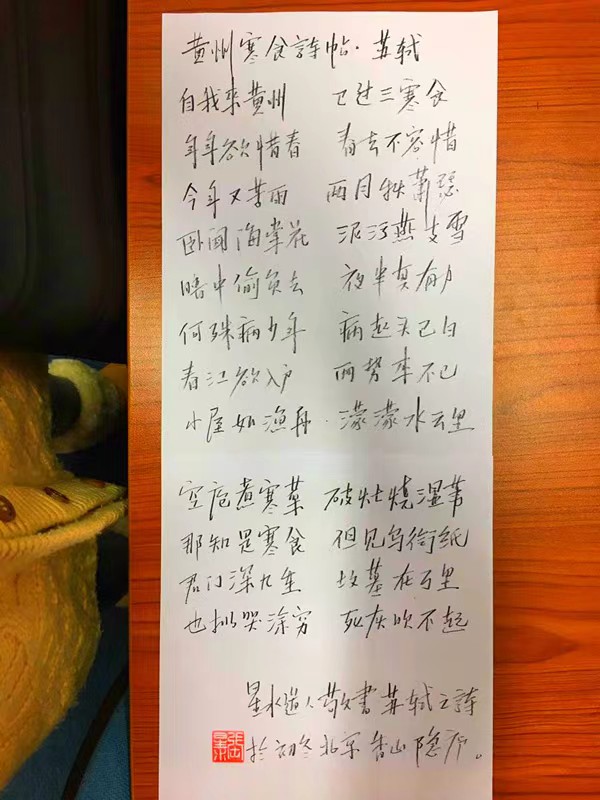 黄州寒食诗帖·苏轼
自我来黄州 已过三寒食
年年欲惜春 春去不容惜
今年又苦雨 两月秋萧瑟
卧闻海棠花 泥污燕支雪
暗中偷负去 夜半真有力
何殊病少年 病起头已白
春江欲入户 雨势来不已
小屋如渔舟·濛濛水云里
空庖煮寒菜 破灶烧湿苇
那知是寒食 但见乌衔纸
君门深九重 坟墓在万里
也拟哭涂穷 死灰吹不起
星水道人敬书苏轼之詩
於初冬北京香山隐所。